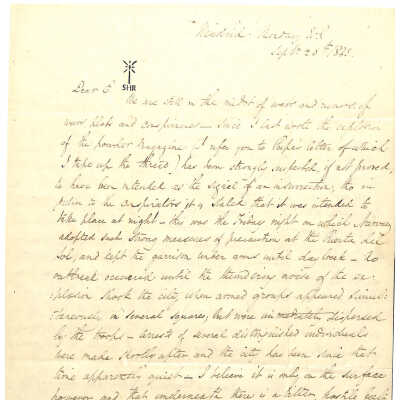 Madrid - Monday
Sept. 28th 18
SHR
Dear E
We are still in the midst of wars and rumors of
wars, plots and conspiracies - Since I last wrote the explosion
of the powder magazine (I refer you to letter of which
I take up the thread) has been strongly suspected, if not proved,
to have been intended as the signal of an insurrection, tho
in the conspirators it is stated that it was intended to
take place at night - this was the Friday night on which Narvaez
adopted such strong measures of precaution at the Puerta del
Sol, and kept the garrison under arms until day break - No
outbreak occurred until the thundering noise of the ex-
plosion shook the city, when armed groups appeared simul-
taneously in several squares, but were immediately dispersed
by the troops - arrests of several distinguished individuals
were made shortly after and the city has been since that
time apparently quiet - I believe it is only on the surface
however and that underneath there is a bitter, hostile